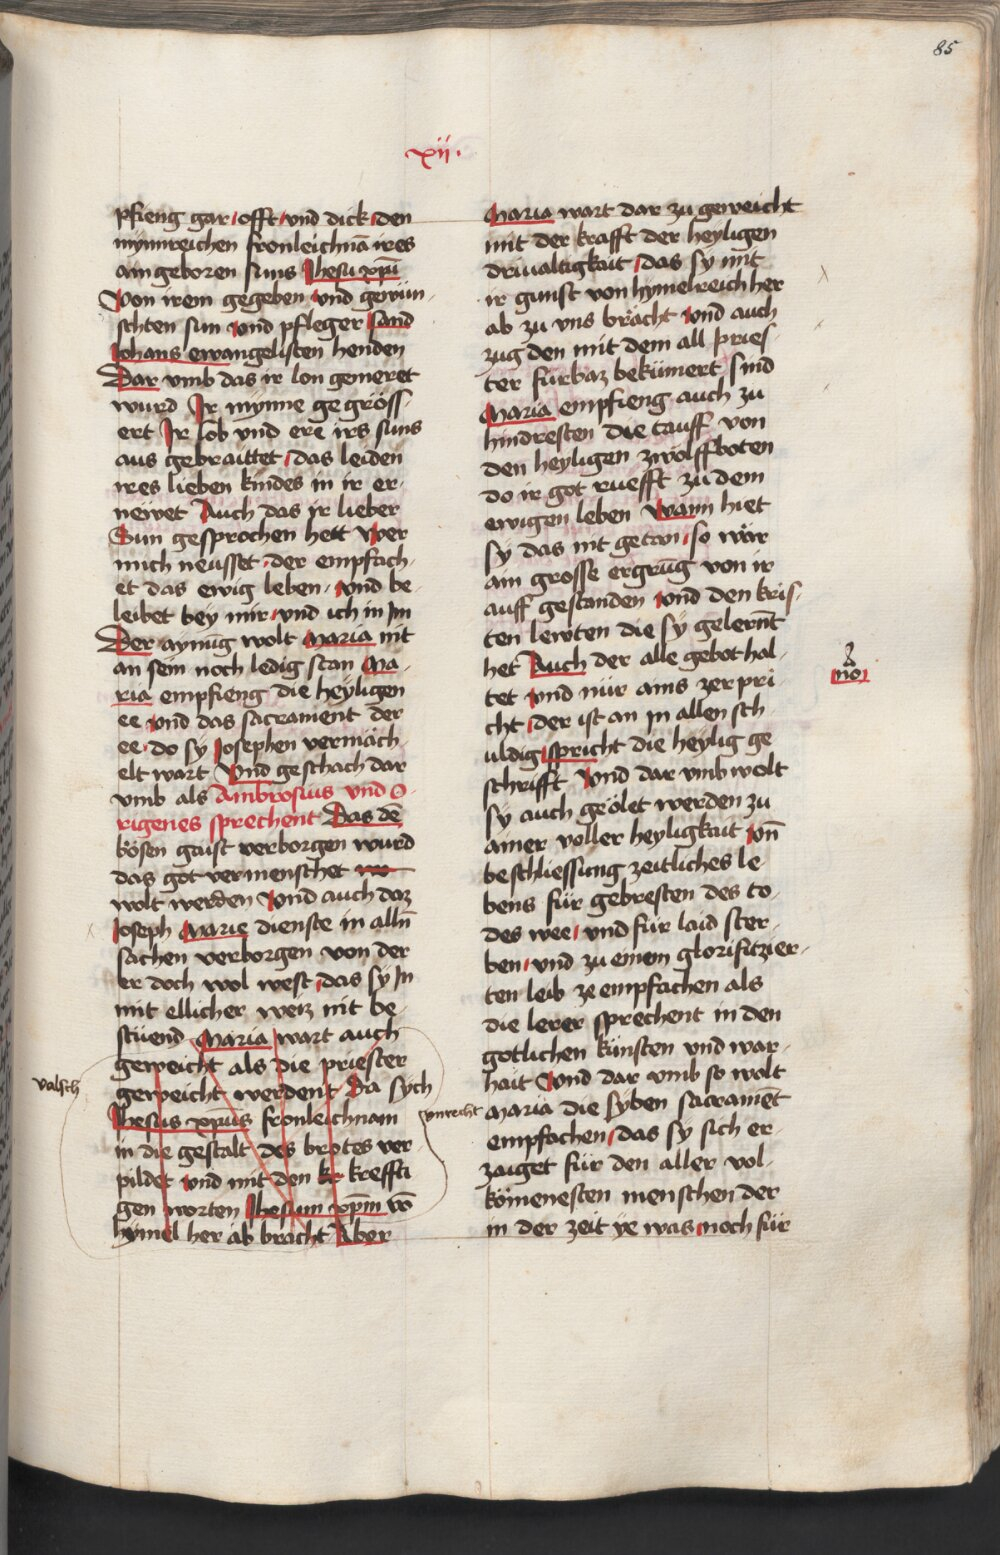 85
xii.
pfieng gar offt vnd dick den
mynnreichen fronleichnā ires
aingeboren suns Jhesu xp̄i
Von irem gegeben vnd gewün-
schten sun vnd pfleger sand
Johans ewangelisten henden
Dar vmb das ir lon gemeret
wurd Ir mynne ge gröss-
ert Ir lob vnd ere irs suns
aus gebraittet das leiden
ires lieben kindes in ir er-
neẅet Auch das ir lieber
Sun gesprochen hett Wer
mich neusset der empfach-
et das ewig leben vnd be-
leibet bey mir vnd ich in Im
Der aynūg wolt Maria nit
an sein noch ledig stan Ma-
ria empfieng die heyligen
ee vnd das sacrament der
ee do sy Josephen vermäch-
elt wart Vnd geschach dar
vmb als Ambrosius vnd O-
rigenes sprechent Das dē
bösen gaist verborgen wurd
das got vermenschet
wolt werden Vnd auch daz
Joseph Marie dienste in alln̄
sachen verborgen von der
er doch wol west das sy In
mit ellicher weiz nit be-
stüend Maria wart auch
geweicht als die priester
geweicht werdent Da sych
valsch
Jhesus xpūs fronleichnam
in die gestalt des brotes ver-
pildet vnd mit den kr kreffti
gen worten Jhesum xpm̄ vō
hymel her ab bracht Aber
vnrecht
Maria wart dar zu geweicht
mit der krafft der heyligen
driualtigkait das sy mit
ir gunst von hymelreich her
ab zu vns brächt vnd auch
zug den mit dem all pries-
ter fürbaz bekümert sind
Maria empfieng auch zu
hindresten die tauff von
den heyligen zwölffboten
do ir got ruefft zu dem
ewigen leben Wann hiet
sy das nit getan so wär
ain grosse ergrūg von ir
auff gestanden vnd den kris-
ten lewten die sy gelernt
het Auch der alle gebot hal-
tet vnd nür ains zerpri-
cht der ist an in allen sch-
uldig spricht die heylig ge
schrifft Vnd dar vmb wolt
nō
sy auch geölet werden zu
ainer voller heyligkait vn̄
beschliessung zeitliches le
bens für gebresten des to-
des wee vnd für laid ster-
ben vnd zu einem glorifitzier-
ten leib ze empfachen als
die lerer sprechent in den
gotlichen künsten vnd war-
hait Vnd dar vmb so wolt
Maria die syben sacramēt
empfachen das sy sich er-
zaiget für den aller vol-
kömenesten menschen der
in der zeit ye was noch für